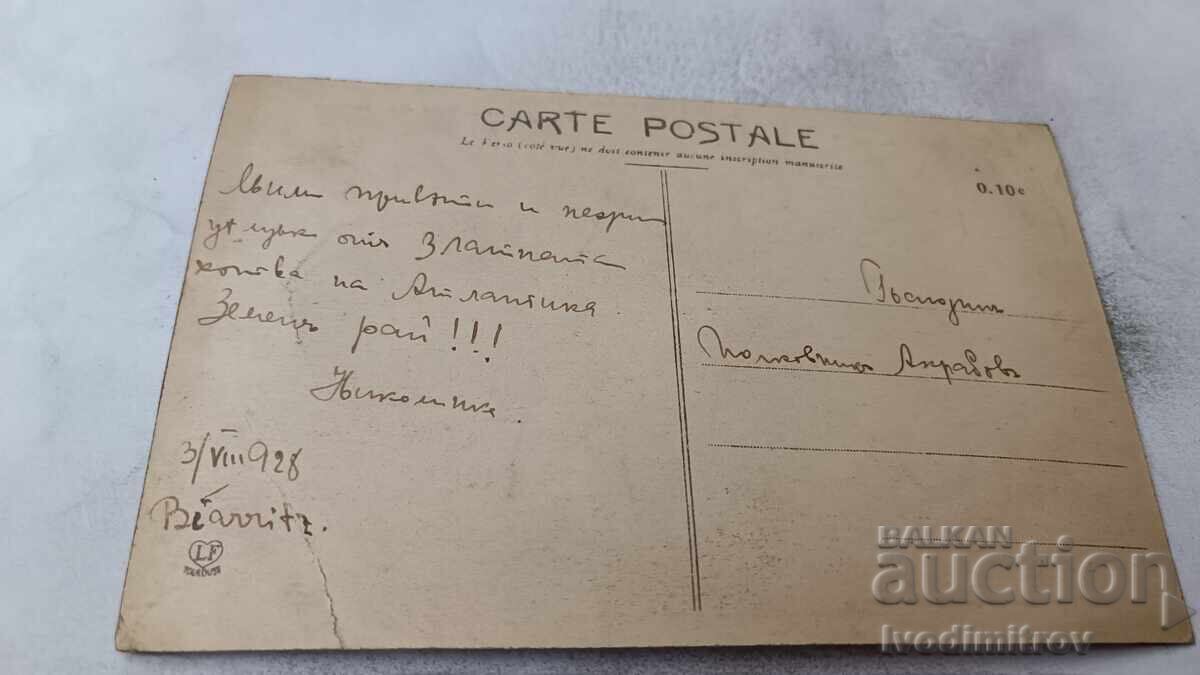 CARTE POSTALE
Le Verso (coté vue) ne doit contenir aucune inscription manuscrite
0.10c
Мили привѣти и
отъ Златната
на Атлантика.
Земенъ рай!!!
Николинка.
3/VIII 928
Biarritz.
LF
Господинъ
Полковникъ Акрабовъ
BALKAN
auction
Ivodimitrov